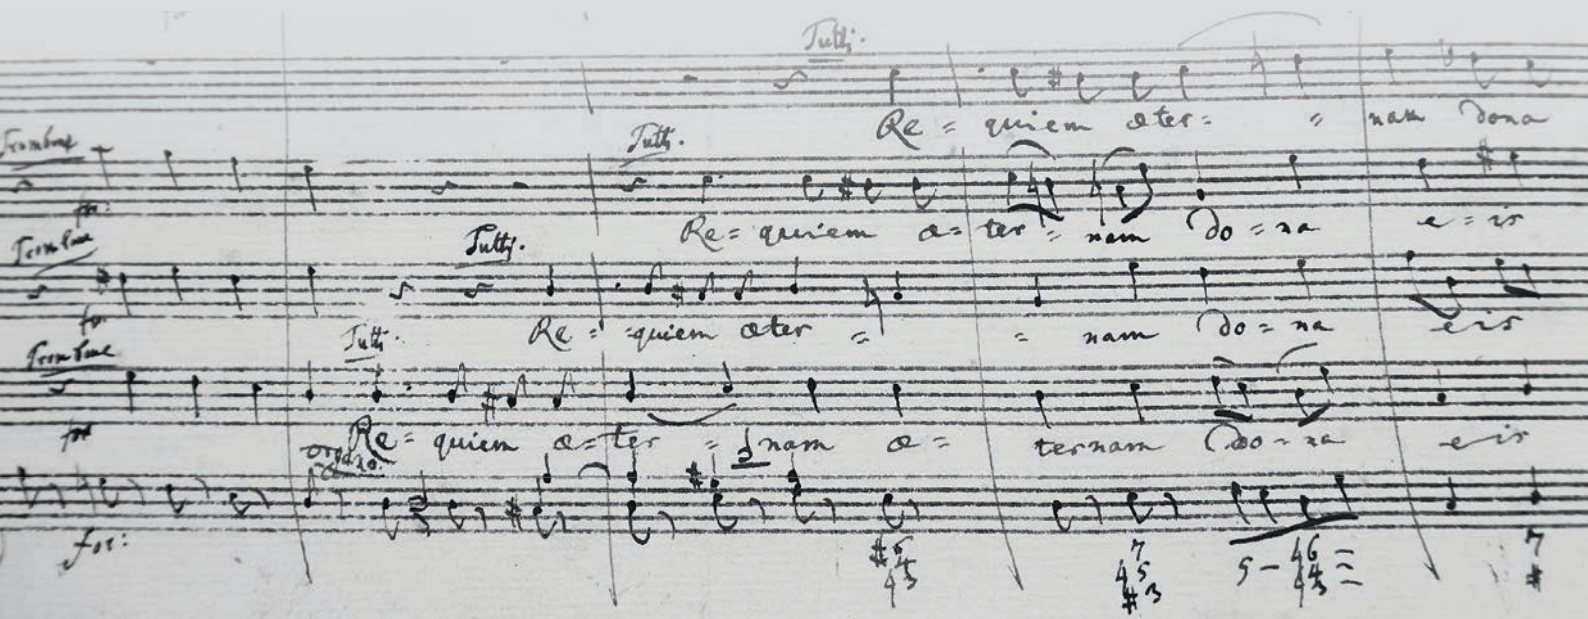 Tutti.
Re = quiem æter = = nam dona
Trombone Tutti.
for: Re = quiem æ = ter = nam Do = na e = is
Trombone Tutti.
for: Re = = quiem æter = = nam Do = na eis
Trombone Tutti.
for Re = quiem æ = ter = nam æ = ternam Do = na eis
organo.
for: